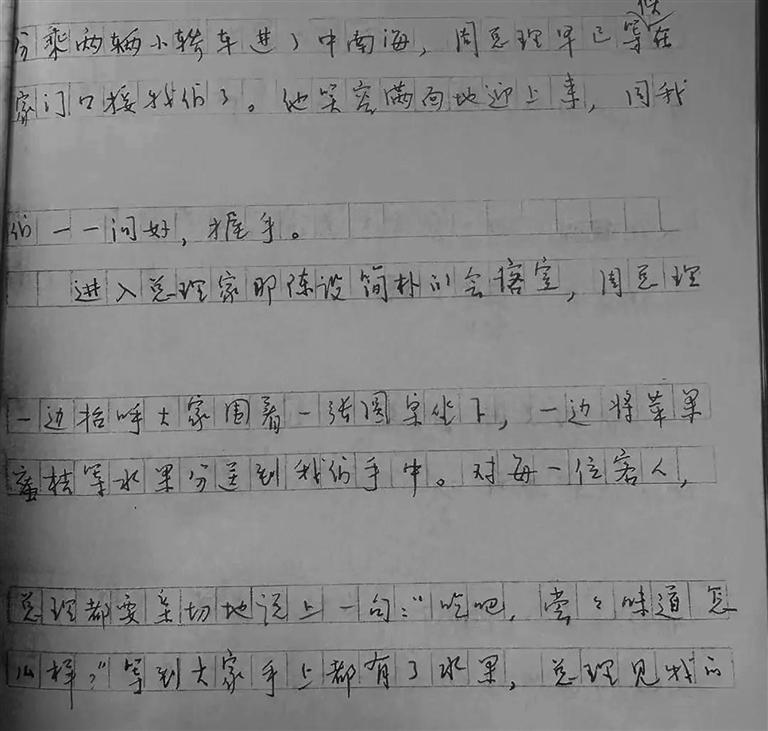 分乘两辆小轿车进了中南海，周总理早已等候在
家门口接我们了。他笑容满面地迎上来，同我
们一一问好，握手。
进入总理家那陈设简朴的会客室，周总理
一边招呼大家围着一张圆桌坐下，一边将苹果
蜜桔等水果分送到我们手中。对每一位客人，
总理都要亲切地说上一句：“吃吧，尝々味道怎
么样？”等到大家手上都有了水果，总理见我们